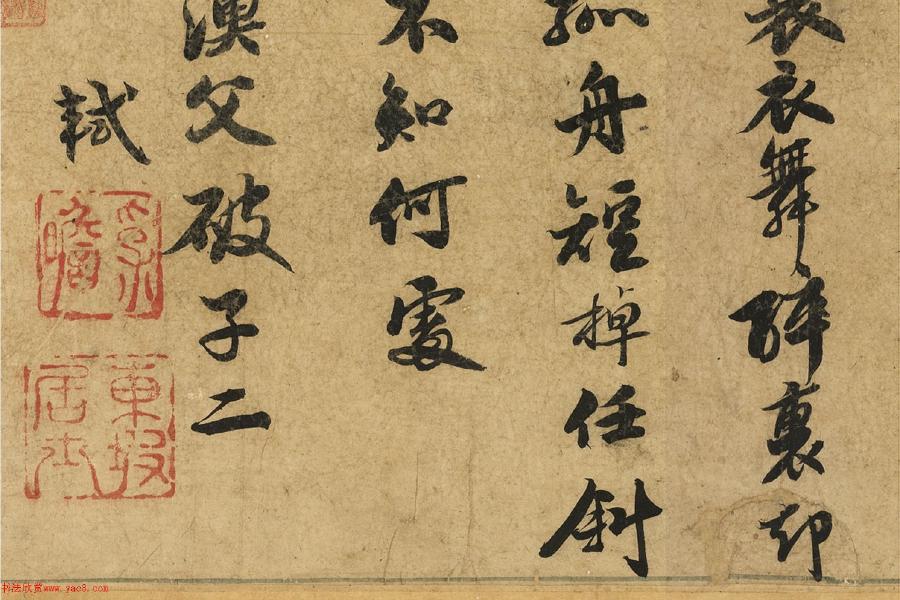 蓑衣舞醉裏却
孤舟短棹任斜
不知何處
漁父破子二
軾
東坡居士
书法欣赏www.yac8.com